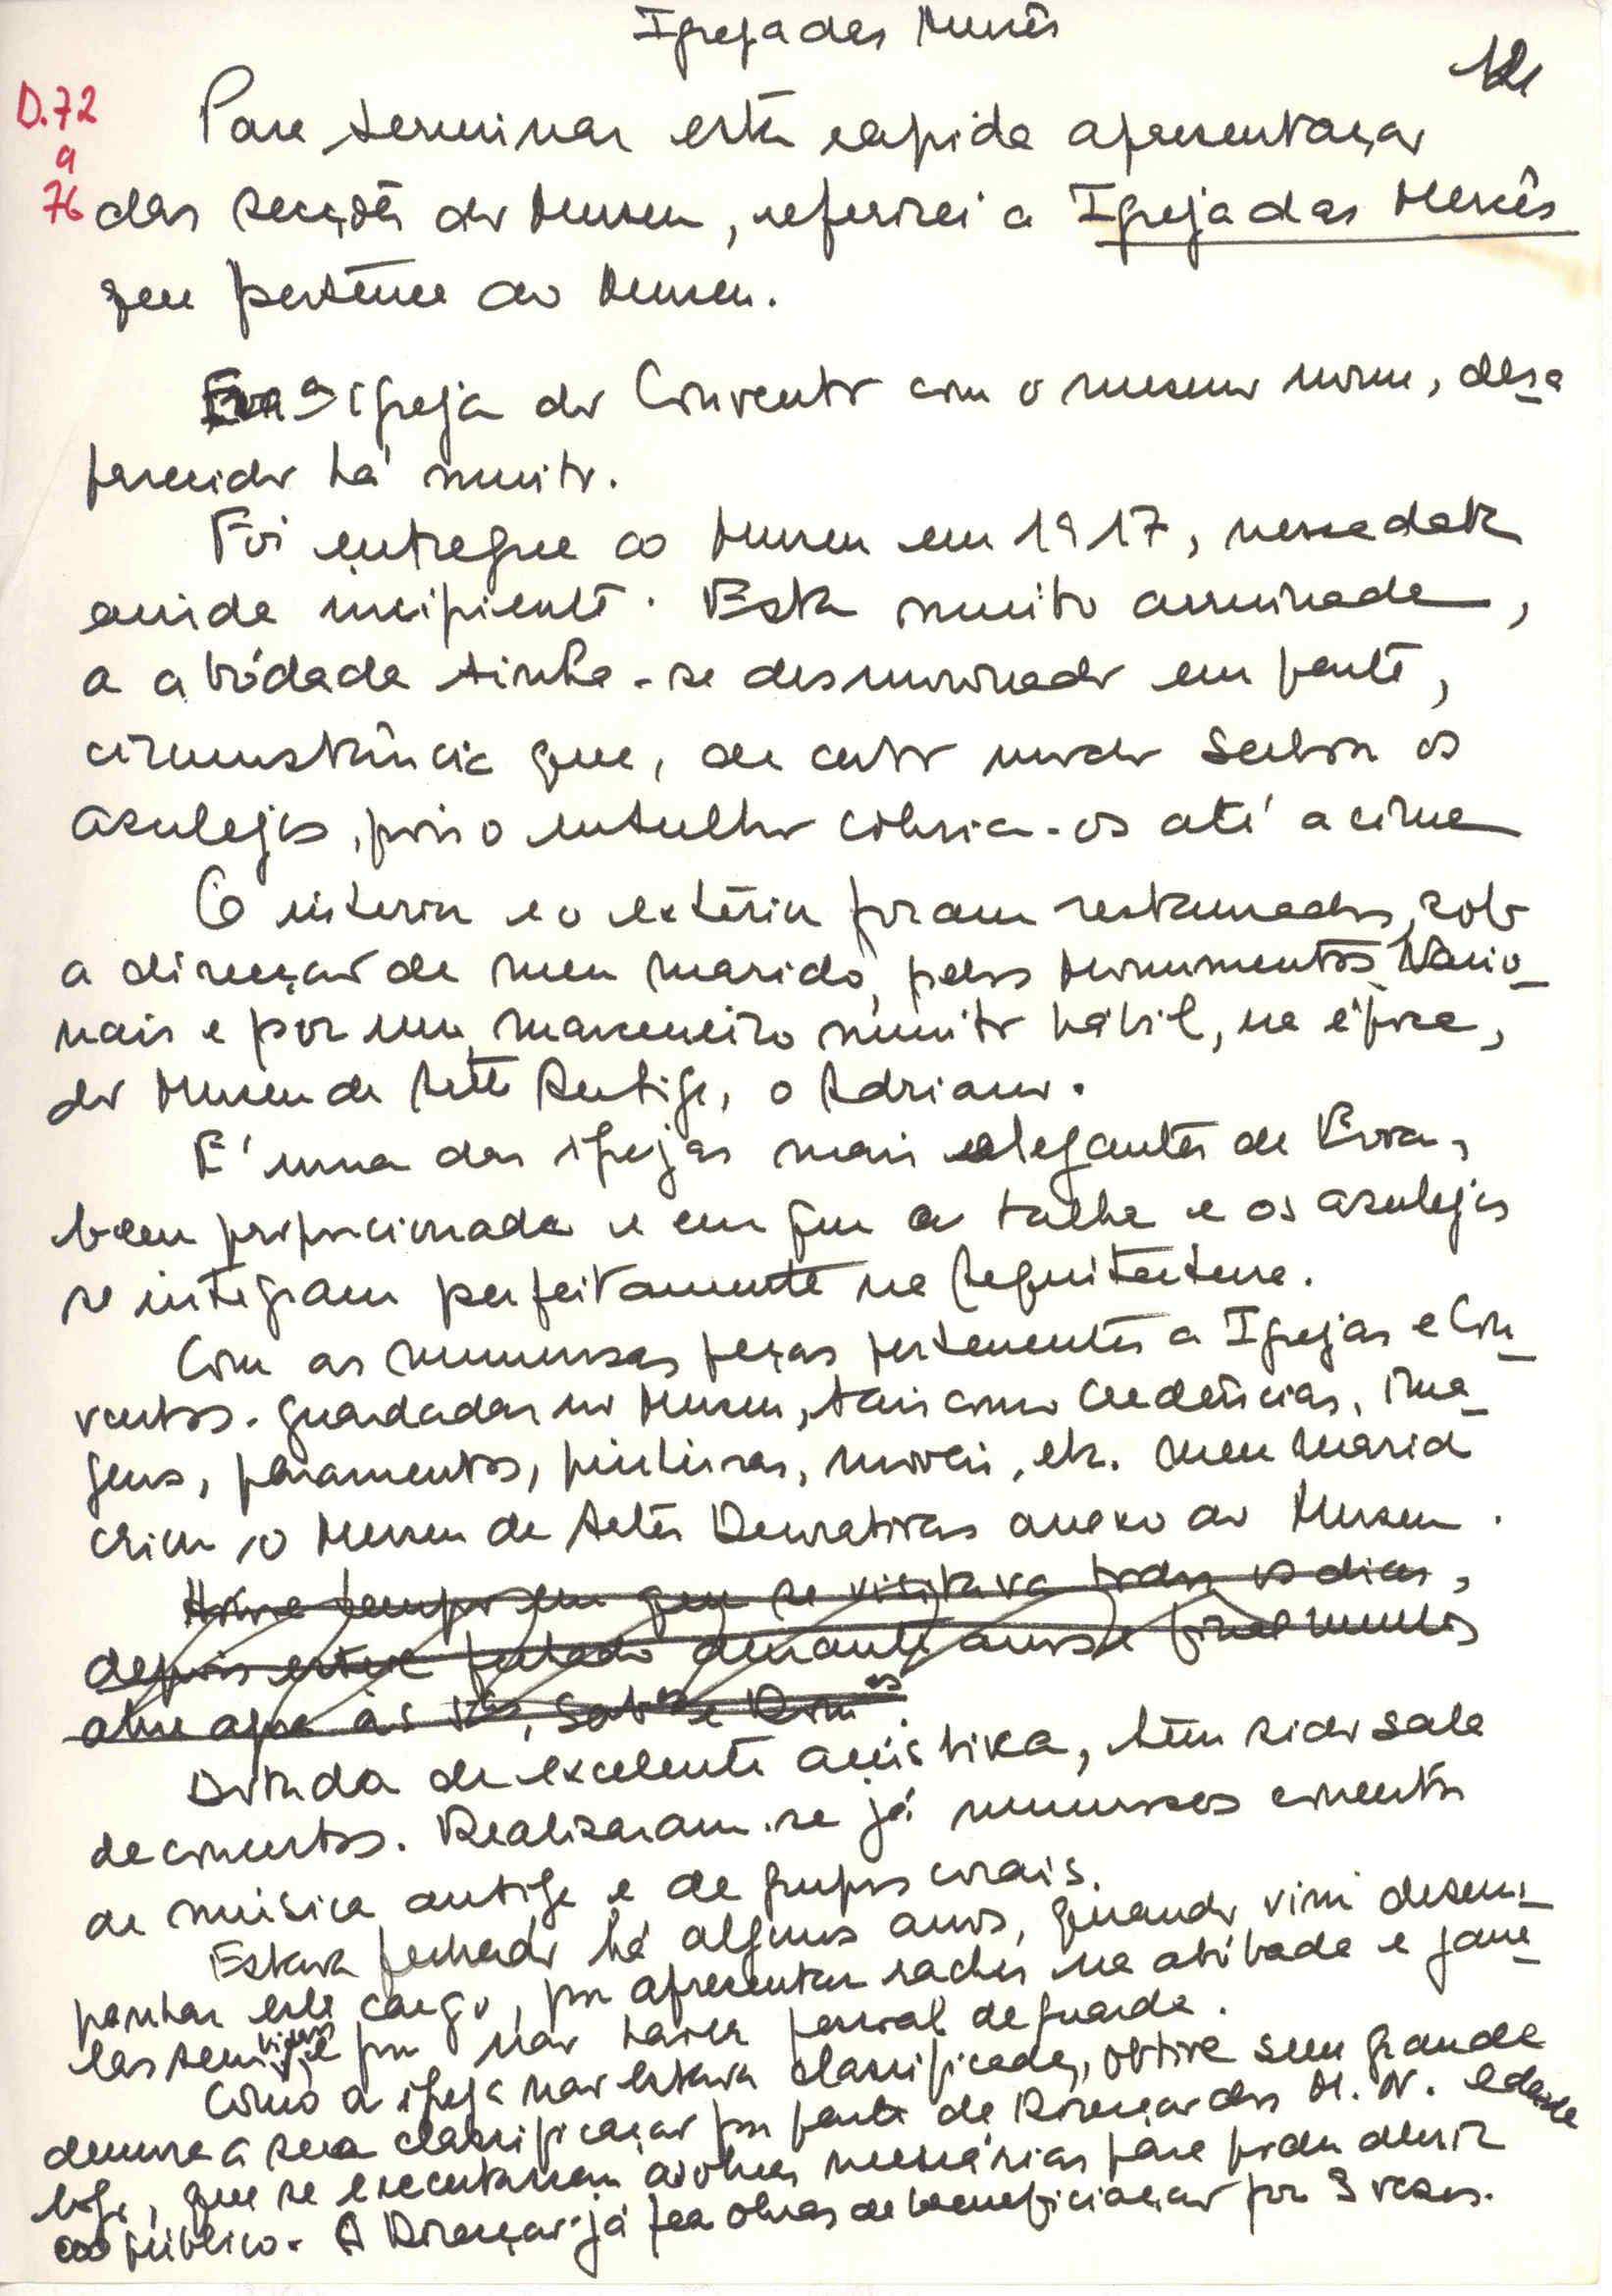 Igreja das Mercês
12
D.72
a
76
Para terminar esta rapida apresentação
das secções do Museu, referirei a Igreja das Mercês
que pertence ao Museu.
Era a igreja do Convento com o mesmo nome, desa
parecido há muito.
Foi entregue ao Museu em 1917, nessa data
ainda incipiente. Esta muito arruinada,
a abóbada tinha-se desmoronado em parte,
circunstância que, de certo modo salvou os
azulejos, pois o entulho cobria-os até acima
O interior e o exterior foram restaurados, sob
a direcção de meu marido, pelos Monumentos Nacio-
nais e por um marceneiro muito hábil, na época,
do Museu de Arte Antiga, o Adriano.
É uma das igrejas mais elegantes de Évora,
bem proporcionada e em que a talha e os azulejos
se integram perfeitamente na Arquitectura.
Com as numerosas peças pertencentes a Igrejas e Con-
ventos. guardadas no Museu, tais como credências, ima-
gens, paramentos, pinturas, moveis, etc. meu marido
criou o Museu de Artes Decorativas anexo ao Museu.
Houve tempo em que se visitava todos os dias,
depois esteve fechado durante anos e finalmente
abre agora às 5as, Sab. e Domos.
Dotada de excelente acústica, tem sido sala
de concertos. Realizaram-se já numerosos concertos
de música antiga e de grupos corais.
Estava fechado há alguns anos, quando vim desem-
penhar este cargo, por apresentar rachas na abóbada e jane-
las sem vidros e por não haver pessoal de guarda.
Como a igreja não estava classificada, obtive sem grande
demora a sua classificação por parte da Direcção dos M. N. e desde
logo, que se executassem as obras necessárias para poder abrir
ao público. A Direcção já fez obras de beneficiação por 3 vezes.